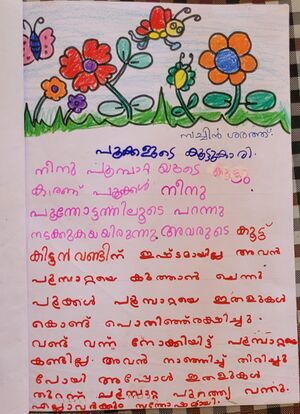 സച്ചിൻ ശരത്ത്.
പൂക്കളുടെ കൂട്ടുകാരി.
നീനു പൂമ്പാറ്റ യുടെ കൂട്ടു
കാരാണ് പൂക്കൾ നീനു
പൂന്തോട്ടത്തിലൂടെ പറന്നു
നടക്കുകയായിരുന്നു. അവരുടെ കൂട്ട്
കിട്ടൻ വണ്ടിന് ഇഷ്ടമായില്ല അവൻ
പൂമ്പാറ്റയെ കുത്താൻ ചെന്നു
പൂക്കൾ പൂമ്പാറ്റയെ ഇതളുകൾ
കൊണ്ട് പൊതിഞ്ഞ് രക്ഷിച്ചു.
വണ്ട് വന്ന് നോക്കിയിട്ട് പൂമ്പാറ്റയെ
കണ്ടില്ല. അവൻ നാണിച്ച് തിരിച്ചു
പോയി അപ്പോൾ ഇതളുകൾ
തുറന്ന് പൂമ്പാറ്റ പുറത്തു വന്നു.
എല്ലാവർക്കും സന്തോഷമായി.